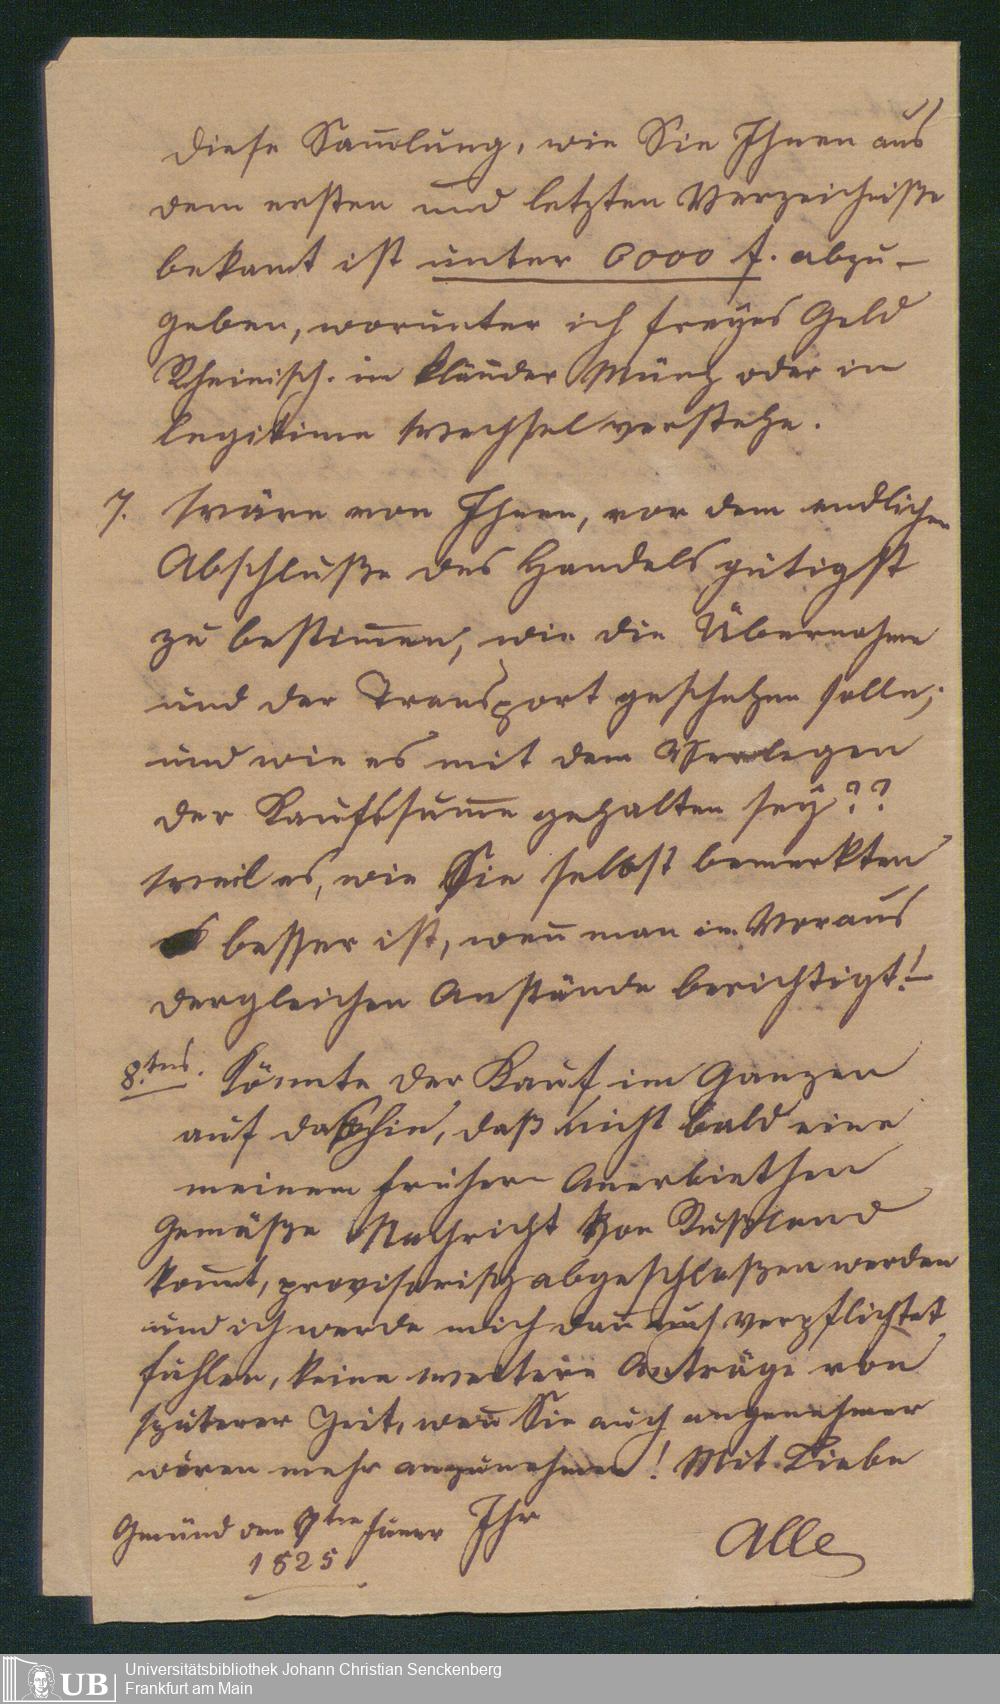 diese Sam̅lung, wie Sie Ihnen aus
dem ersten und letzten Verzeichniße
bekan̅t ist unter 6000 f. abzu-
geben, worunter ich freyes Geld
Rheinisch. in Münz oder in
legitime Wechsel verstehe.
7. Wäre von Ihnen, vor dem endlichen
Abschluße des Handels gütigst
zu bestim̅en, wie die Übernahme
und der Transport geschehen solle;
und wie es mit dem Verlegen
der Kaufssum̅e gehalten sey??
weil es, wie Sie selbst bemerkten
besser ist, wen̅ man im Voraus
dergleichen Anstände berichtigt!-
8.tns. Könnte der Kauf im Ganzen
auf dahin, daß nicht bald eine
meinem frühern Anerbiethen
Gemäße Nachricht von Rußland
kom̅t, provisorisch abgeschlaßen werden
und ich werde mich dan̅ auch verpflichtet
fühlen, keine weitere Anträge von
späterer Zeit, wen̅ Sie auch angenehmer
wären mehr anzunehmen! Mit Liebe
Gmünd den 9ten Jäner Ihr
1825 Alle
Universitätsbibliothek Johann Christian Senckenberg
Frankfurt am Main
UB